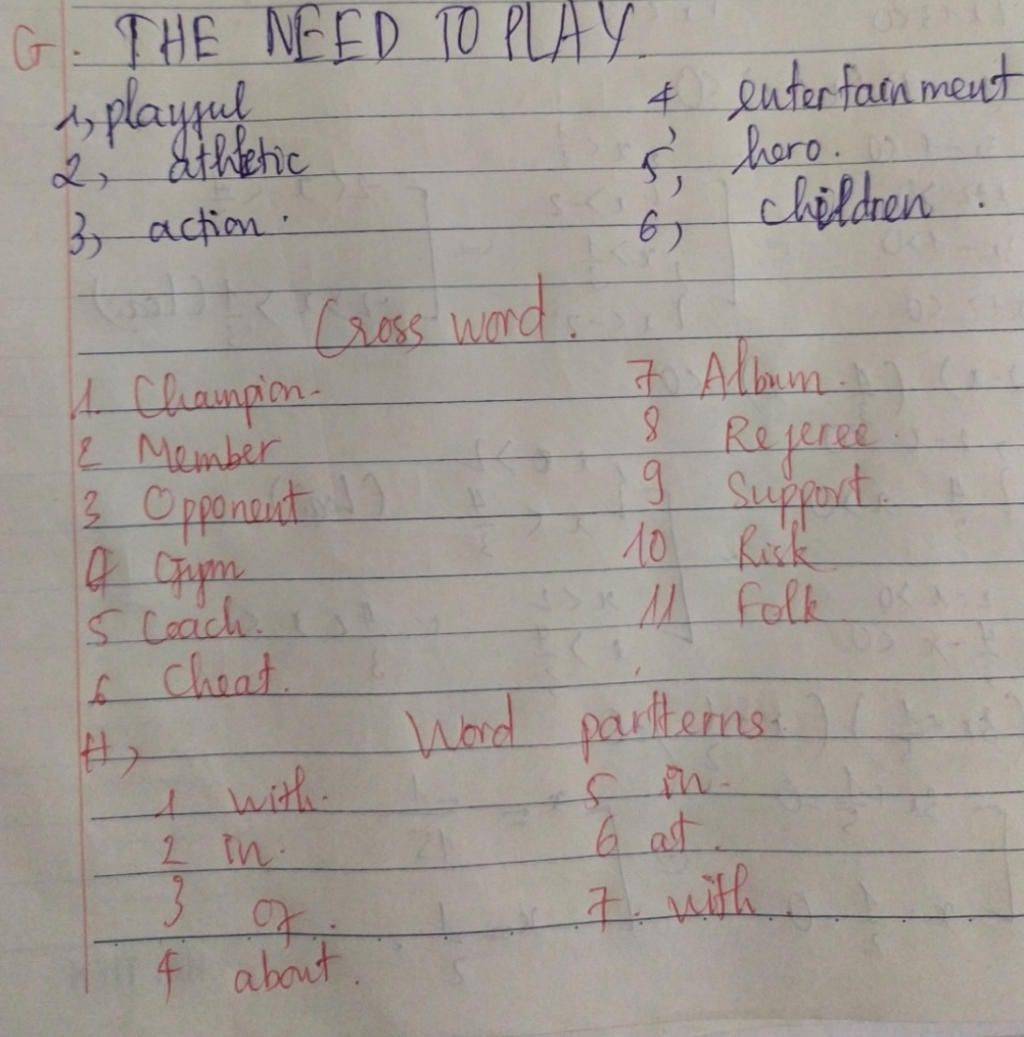 G. THE NEED TO PLAY.
1, playful 4, entertainment
2, athletic 5, hero.
3, action. 6, children.
Cross word.
1. Champion. 7 Album.
2 Member 8 Referee.
3 Opponent 9 Support.
4 Gym 10 Risk
5 Coach. 11 Folk
6 Cheat.
H, Word partterns.
1 with. 5 in.
2 in. 6 at.
3 of. 7. with
4 about.